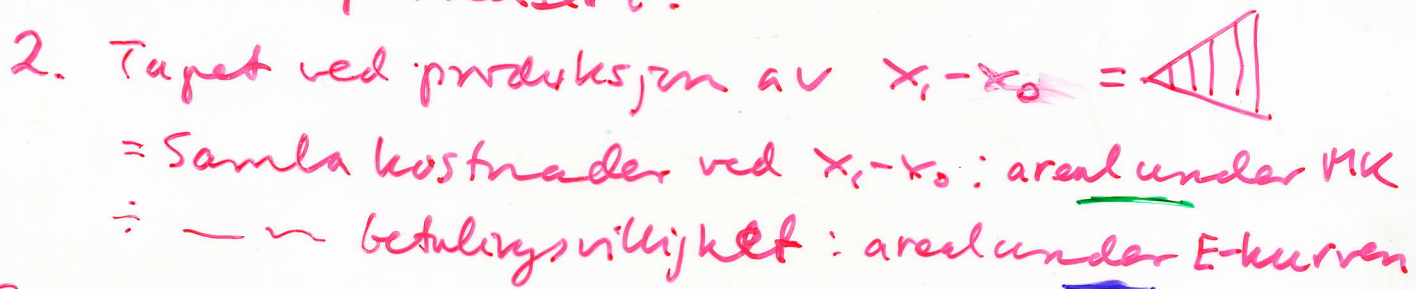 2. Tapet ved produksjon av x₁-x₀ =
= Samla kostnader ved x₁-x₀: areal under MK
÷ — ~ betalingsvillighet: areal under E-kurven